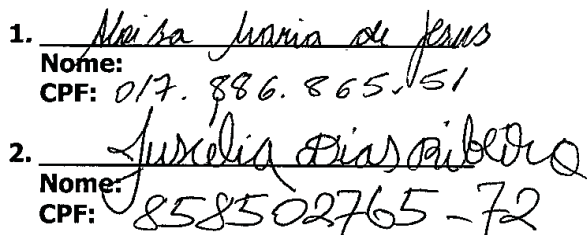 1. Maria de Jesus
Nome:
CPF: 017.886.865-51
2. Juscélia Dias Ribeiro
Nome:
CPF: 858502765-72